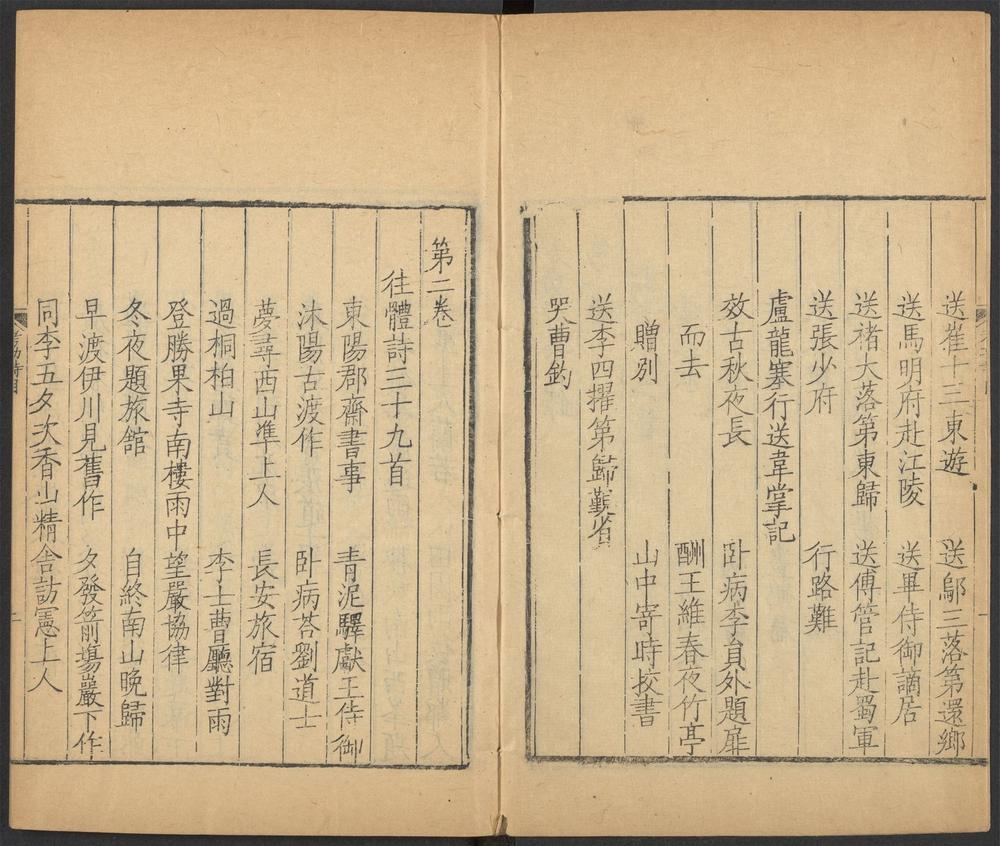 送崔十三東遊　送鄔三落第還鄉
送馬明府赴江陵　送畢侍御謫居
送褚大落第東歸　送傅管記赴蜀軍
送張少府　行路難
盧龍塞行送韋掌記
效古秋夜長　卧病李員外題扉
而去　酬王維春夜竹亭
贈別　山中寄時挍書
送李四擢第歸覲省
哭曹鈞
第二卷
往體詩三十九首
東陽郡齋書事　青泥驛獻王侍御
沐陽古渡作　卧病荅劉道士
夢尋西山準上人　長安旅宿
過桐柏山　李士曹廳對雨
登勝果寺南樓雨中望嚴協律
冬夜題旅館　自終南山晚歸
早渡伊川見舊作　夕發箭塲巖下作
同李五夕次香山精舍訪憲上人